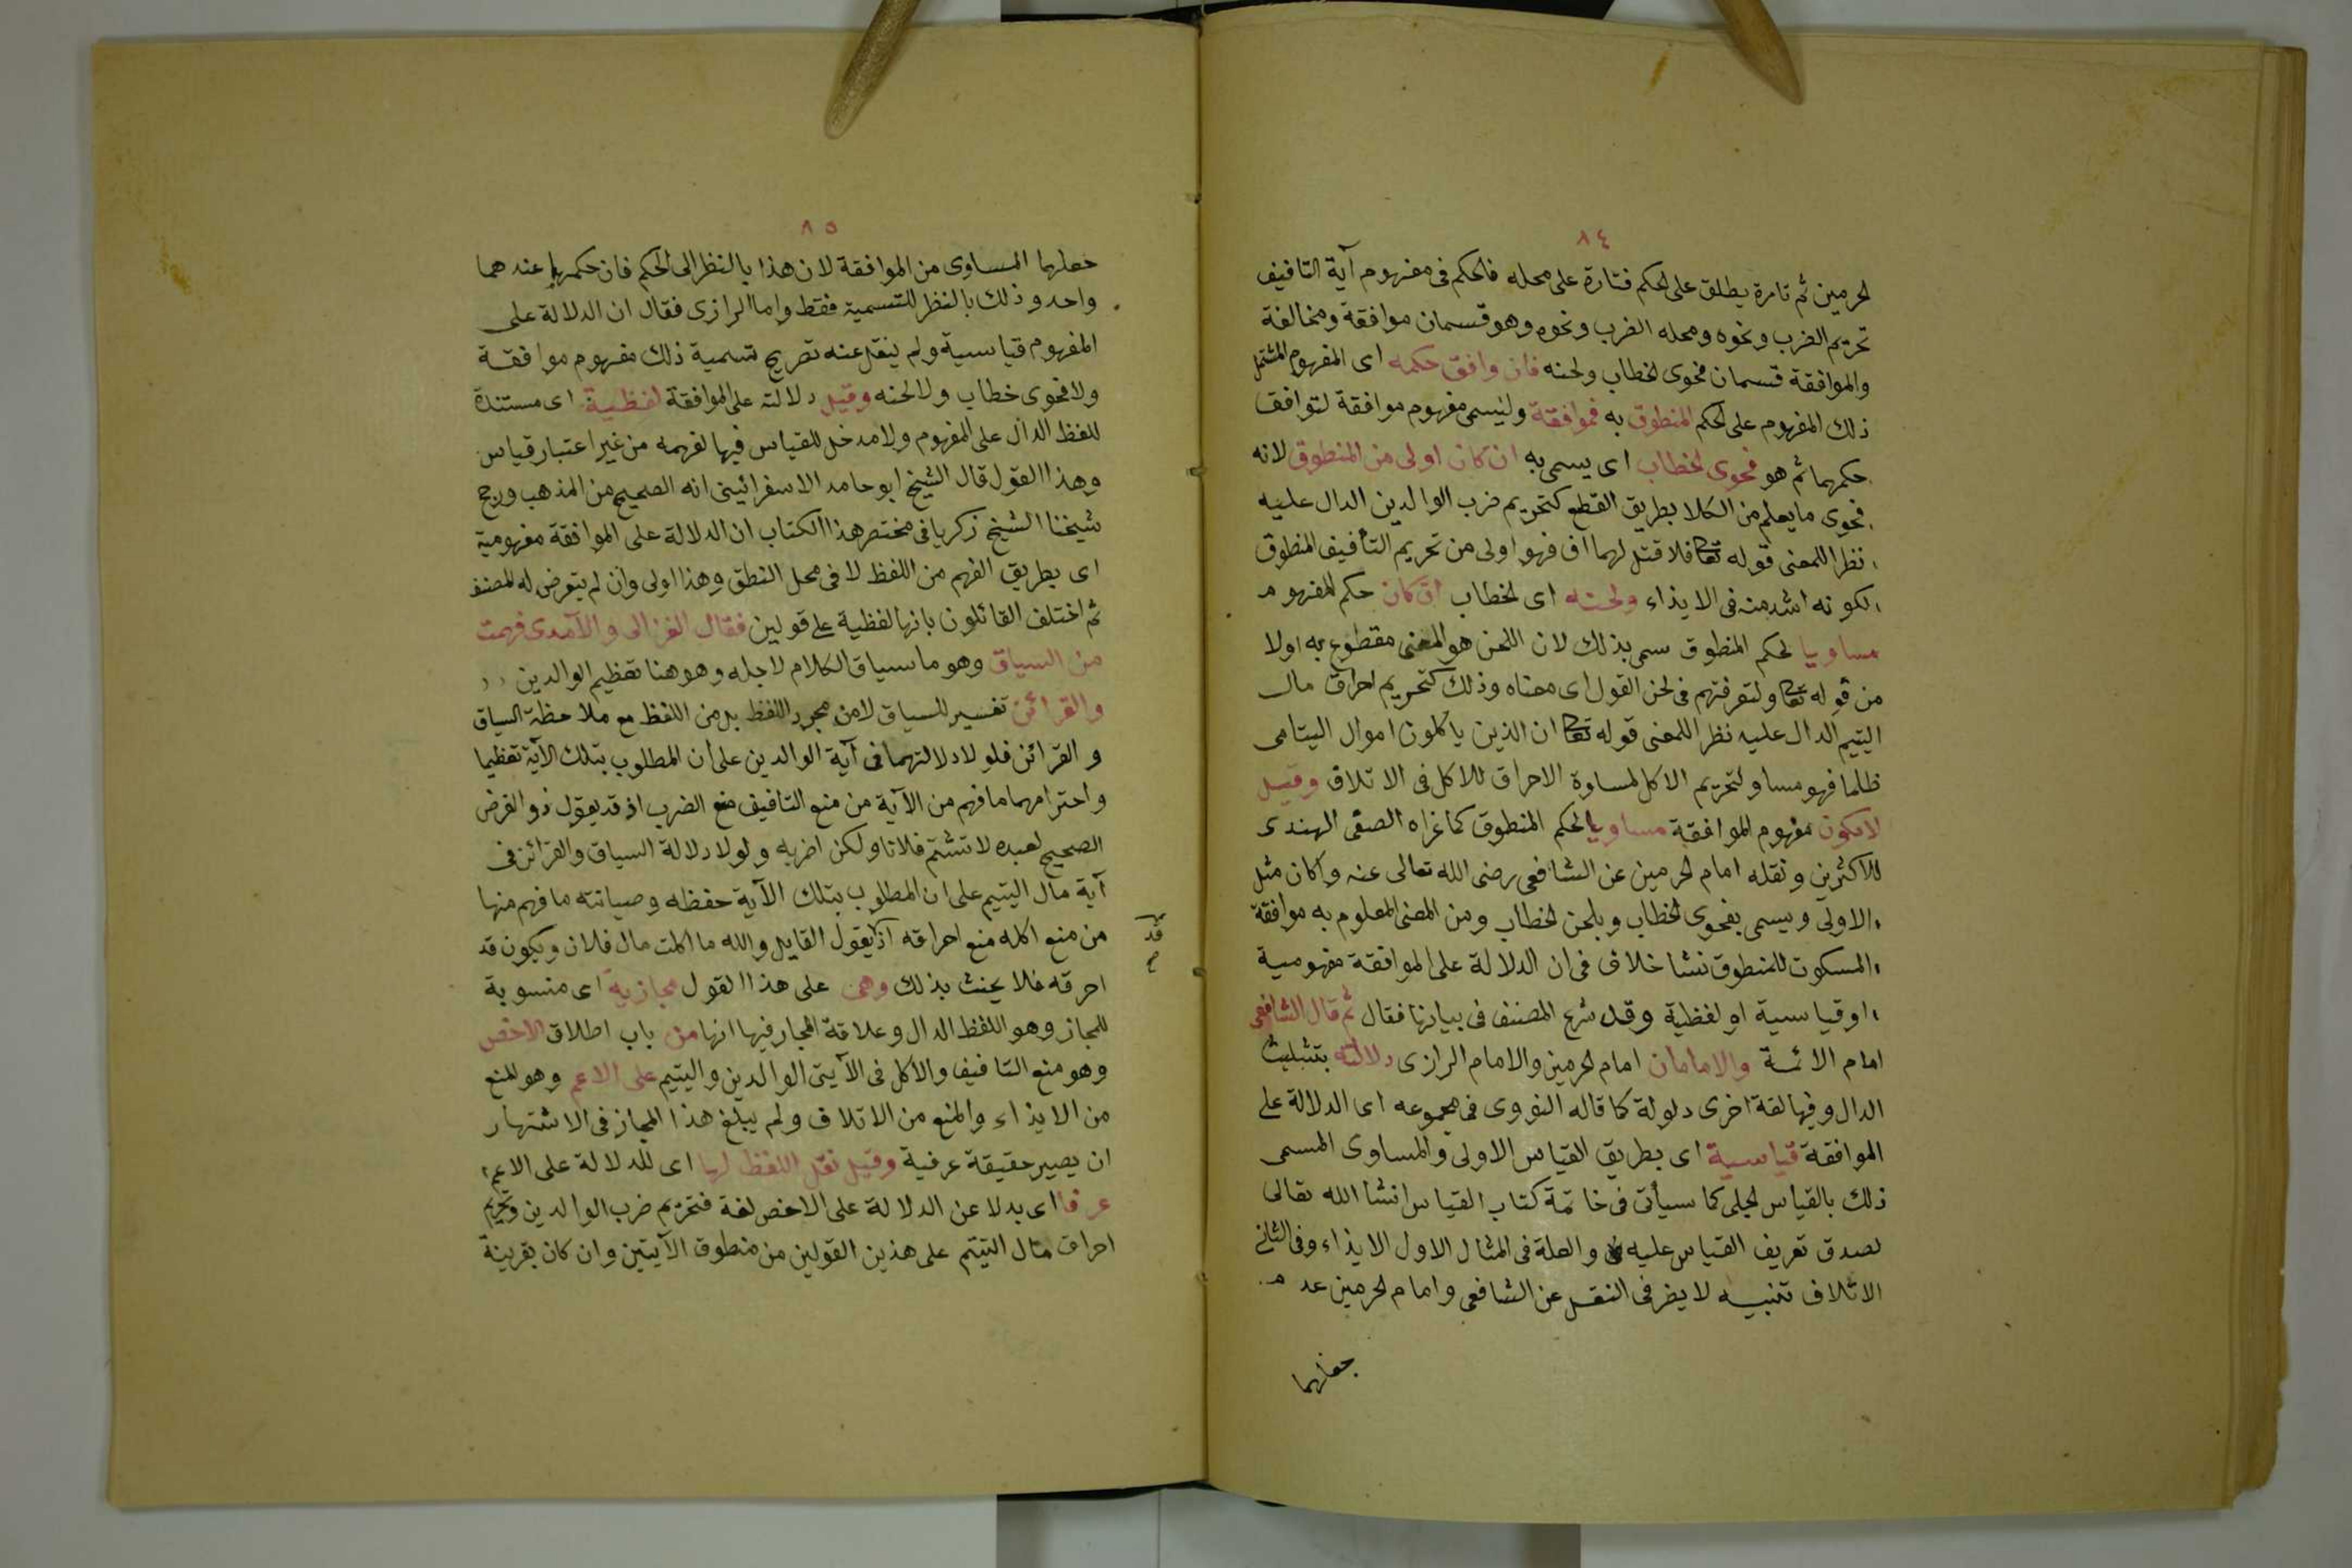 ٨٤
لحرمين ثم تارة يطلق على الحكم فتارة على محله فالحكم فى مفهوم آية التافيف
تحريم الضرب ونحوه ومحله الضرب ونحوه وهو قسمان موافقة ومخالفة
والموافقة قسمان فحوى لخطاب ولحنه فان وافق حكمه اى المفهوم المشتمل
ذلك المفهوم على الحكم المنطوق به فموافقة وليسمى مفهوم موافقة لتوافق
حكمهما ثم هو فحوى لخطاب اى يسمى به ان كان اولى من المنطوق لانه
فحوى ما يعلم من الكلا بطريق القطع كتحريم ضرب الوالدين الدال عليه
نظرا للمعنى قوله تعا فلا تقتل لهما اف فهو اولى من تحريم التأفيف المنطوق
لكونه اشد منه فى الايذاء ولحنه اى لخطاب ان كان حكم المفهوم
مساويا لحكم المنطوق سمى بذلك لان اللحن هو المعنى مقطوع به اولا
من قوله تعا ولتعرفنهم فى لحن القول اى معناه وذلك كتحريم احراق مال
اليتيم الدال عليه نظرا للمعنى قوله تعا ان الذين ياكلون اموال اليتامى
ظلما فهو مساو لتحريم الاكل لمساوة الاحراق للاكل فى الاتلاف وقيل
لا يكون مفهوم الموافقة مساويا لحكم المنطوق كما غراه الصفى الهندى
للاكثرين ونقله امام لحرمين عن الشافعى رضى الله تعالى عنه وان كان مثل
الاولى ويسمى بفحوى لخطاب وبلحن لخطاب ومن المعنى المعلوم به موافقة
المسكوت للمنطوق نشا خلاف فى ان الدلالة على الموافقة مفهومية
او قياسية او لفظية وقد شرح المصنف فى بيانها فقال ثم قال الشافعى
امام الائمة والامامان امام لحرمين والامام الرازى دلالته بتثليث
الدال وفيها لغة اخرى دلولة كما قاله النووى فى مجموعه اى الدلالة على
الموافقة قياسية اى بطريق القياس الاولى والمساوى المسمى
ذلك بالقياس لجلى كما سيأتى فى خاتمة كتاب القياس انشا الله تعالى
لصدق تعريف القياس عليه والعلة فى المثال الاول الايذاء وفى الثانى
الاتلاف تنبيه لا يضر فى النقل عن الشافعى وامام لحرمين عدم
جعلهما
٨٥
جعلهما المساوى من الموافقة لان هذا بالنظر الى الحكم فان حكمهما عندهما
واحد وذلك بالنظر للتسمية فقط واما الرازى فقال ان الدلالة على
المفهوم قياسية ولم ينقل عنه تصريح تسمية ذلك مفهوم موافقة
ولا فحوى خطاب ولا لحنه وقيل دلالته على الموافقة لفظية اى مستندة
للفظ الدال على المفهوم ولا مدخل للقياس فيها لفهمه من غير اعتبار قياس
وهذا القول قال الشيخ ابو حامد الاسفرائينى انه الصحيح من المذهب ورجح
شيخنا الشيخ زكريا فى مختصر هذا الكتاب ان الدلالة على الموافقة مفهومية
اى بطريق الفهم من اللفظ لا فى محل النطق وهذا اولى وان لم يتعرض له المصنف
ثم اختلف القائلون بانها لفظية على قولين فقال الغزالى والآمدى فهمت
من السياق وهو ما سياق الكلام لاجله وهو هنا تعظيم الوالدين
والقرائن تفسير للسياق لا من مجرد اللفظ بل من اللفظ مع ملاحظة السياق
والقرائن فلو لا دلالتهما فى آية الوالدين على أن المطلوب بتلك الآية تعظيما
واحترامهما ما فهم من الآية من منع التافيف منع الضرب اذ قد يقول ذو الغرض
الصحيح لعبده لا تشتم فلانا ولكن اضربه ولولا دلالة السياق والقرائن فى
آية مال اليتيم على ان المطلوب بتلك الآية حفظه وصيانته ما فهم منها
من منع اكله منع احراقه اذ يقول القايل والله ما اكلت مال فلان ويكون قد
قد
احرقه فلا يحنث بذلك وهى على هذا القول مجازية اى منسوبة
للمجاز وهو اللفظ الدال وعلاقة المجاز فيها انها من باب اطلاق الاخص
وهو منع التافيف والاكل فى الآيتى الوالدين واليتيم على الاعم وهو المنع
من الايذاء والمنع من الاتلاف ولم يبلغ هذا المجاز فى الاشتهار
ان يصير حقيقة عرفية وقيل نقل اللفظ لها اى للدلالة على الاعم
عرفا اى بدلا عن الدلالة على الاخص لغة فتحريم ضرب الوالدين وتحريم
احراق مال اليتيم على هذين القولين من منطوق الآيتين وان كان بقرينة